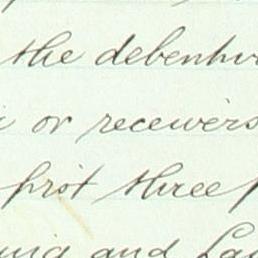 the debentur
or receivers
first three
and